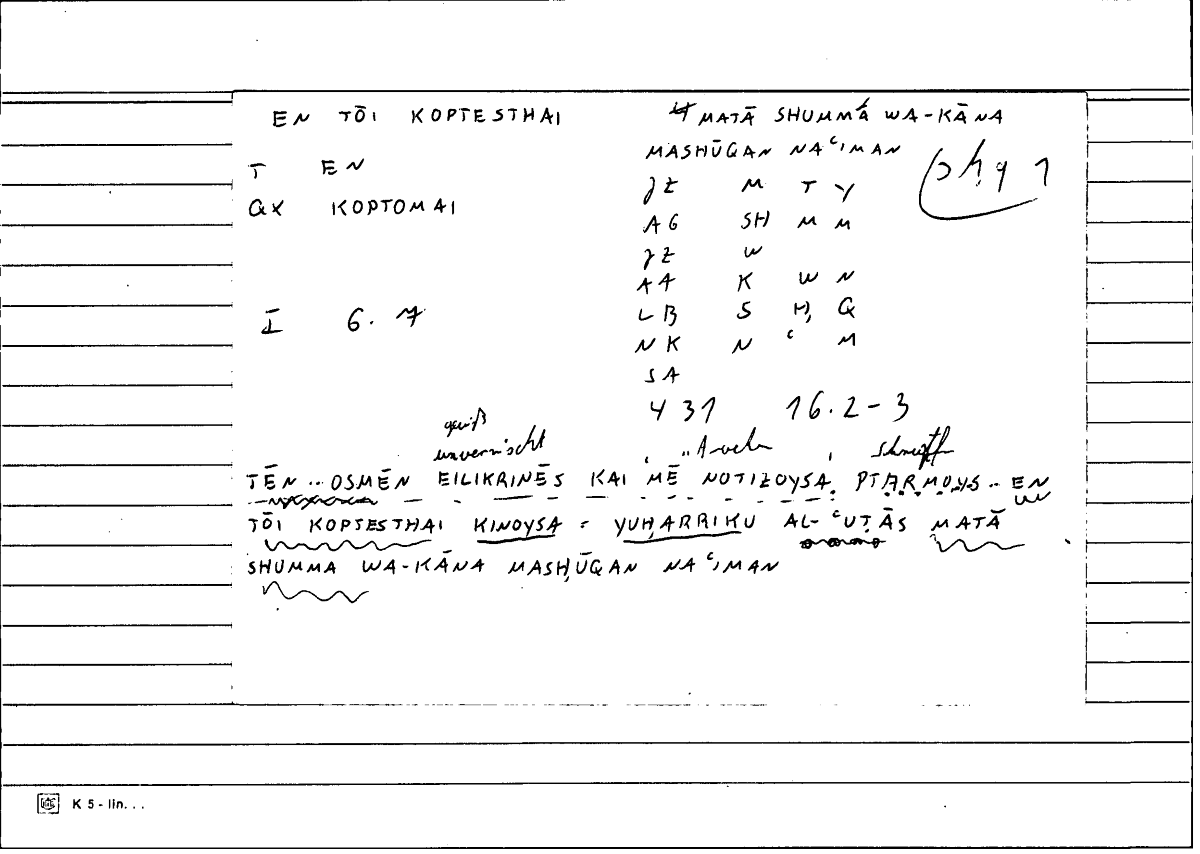 EN TŌI KOPTESTHAI
T EN
QX KOPTOMAI
I 6. 7
MATĀ SHUMMA WA-KĀNA
MASHŪQAN NAʿIMAN
M T Y
AG SH M M
W
AA K W N
LB S Ḥ Q
NK N ʿ M
SA
431 16.2-3
unvermischt
TĒN .. OSMĒN EILIKRINĒS KAI MĒ NOTIZOYSA, PTARMOYS .. EN
TŌI KOPTESTHAI KINOYSA = YUḤARRIKU AL-ʿUṬĀS MATĀ
SHUMMA WA-KĀNA MASḤŪQAN NAʿIMAN
K 5 - lin. . .